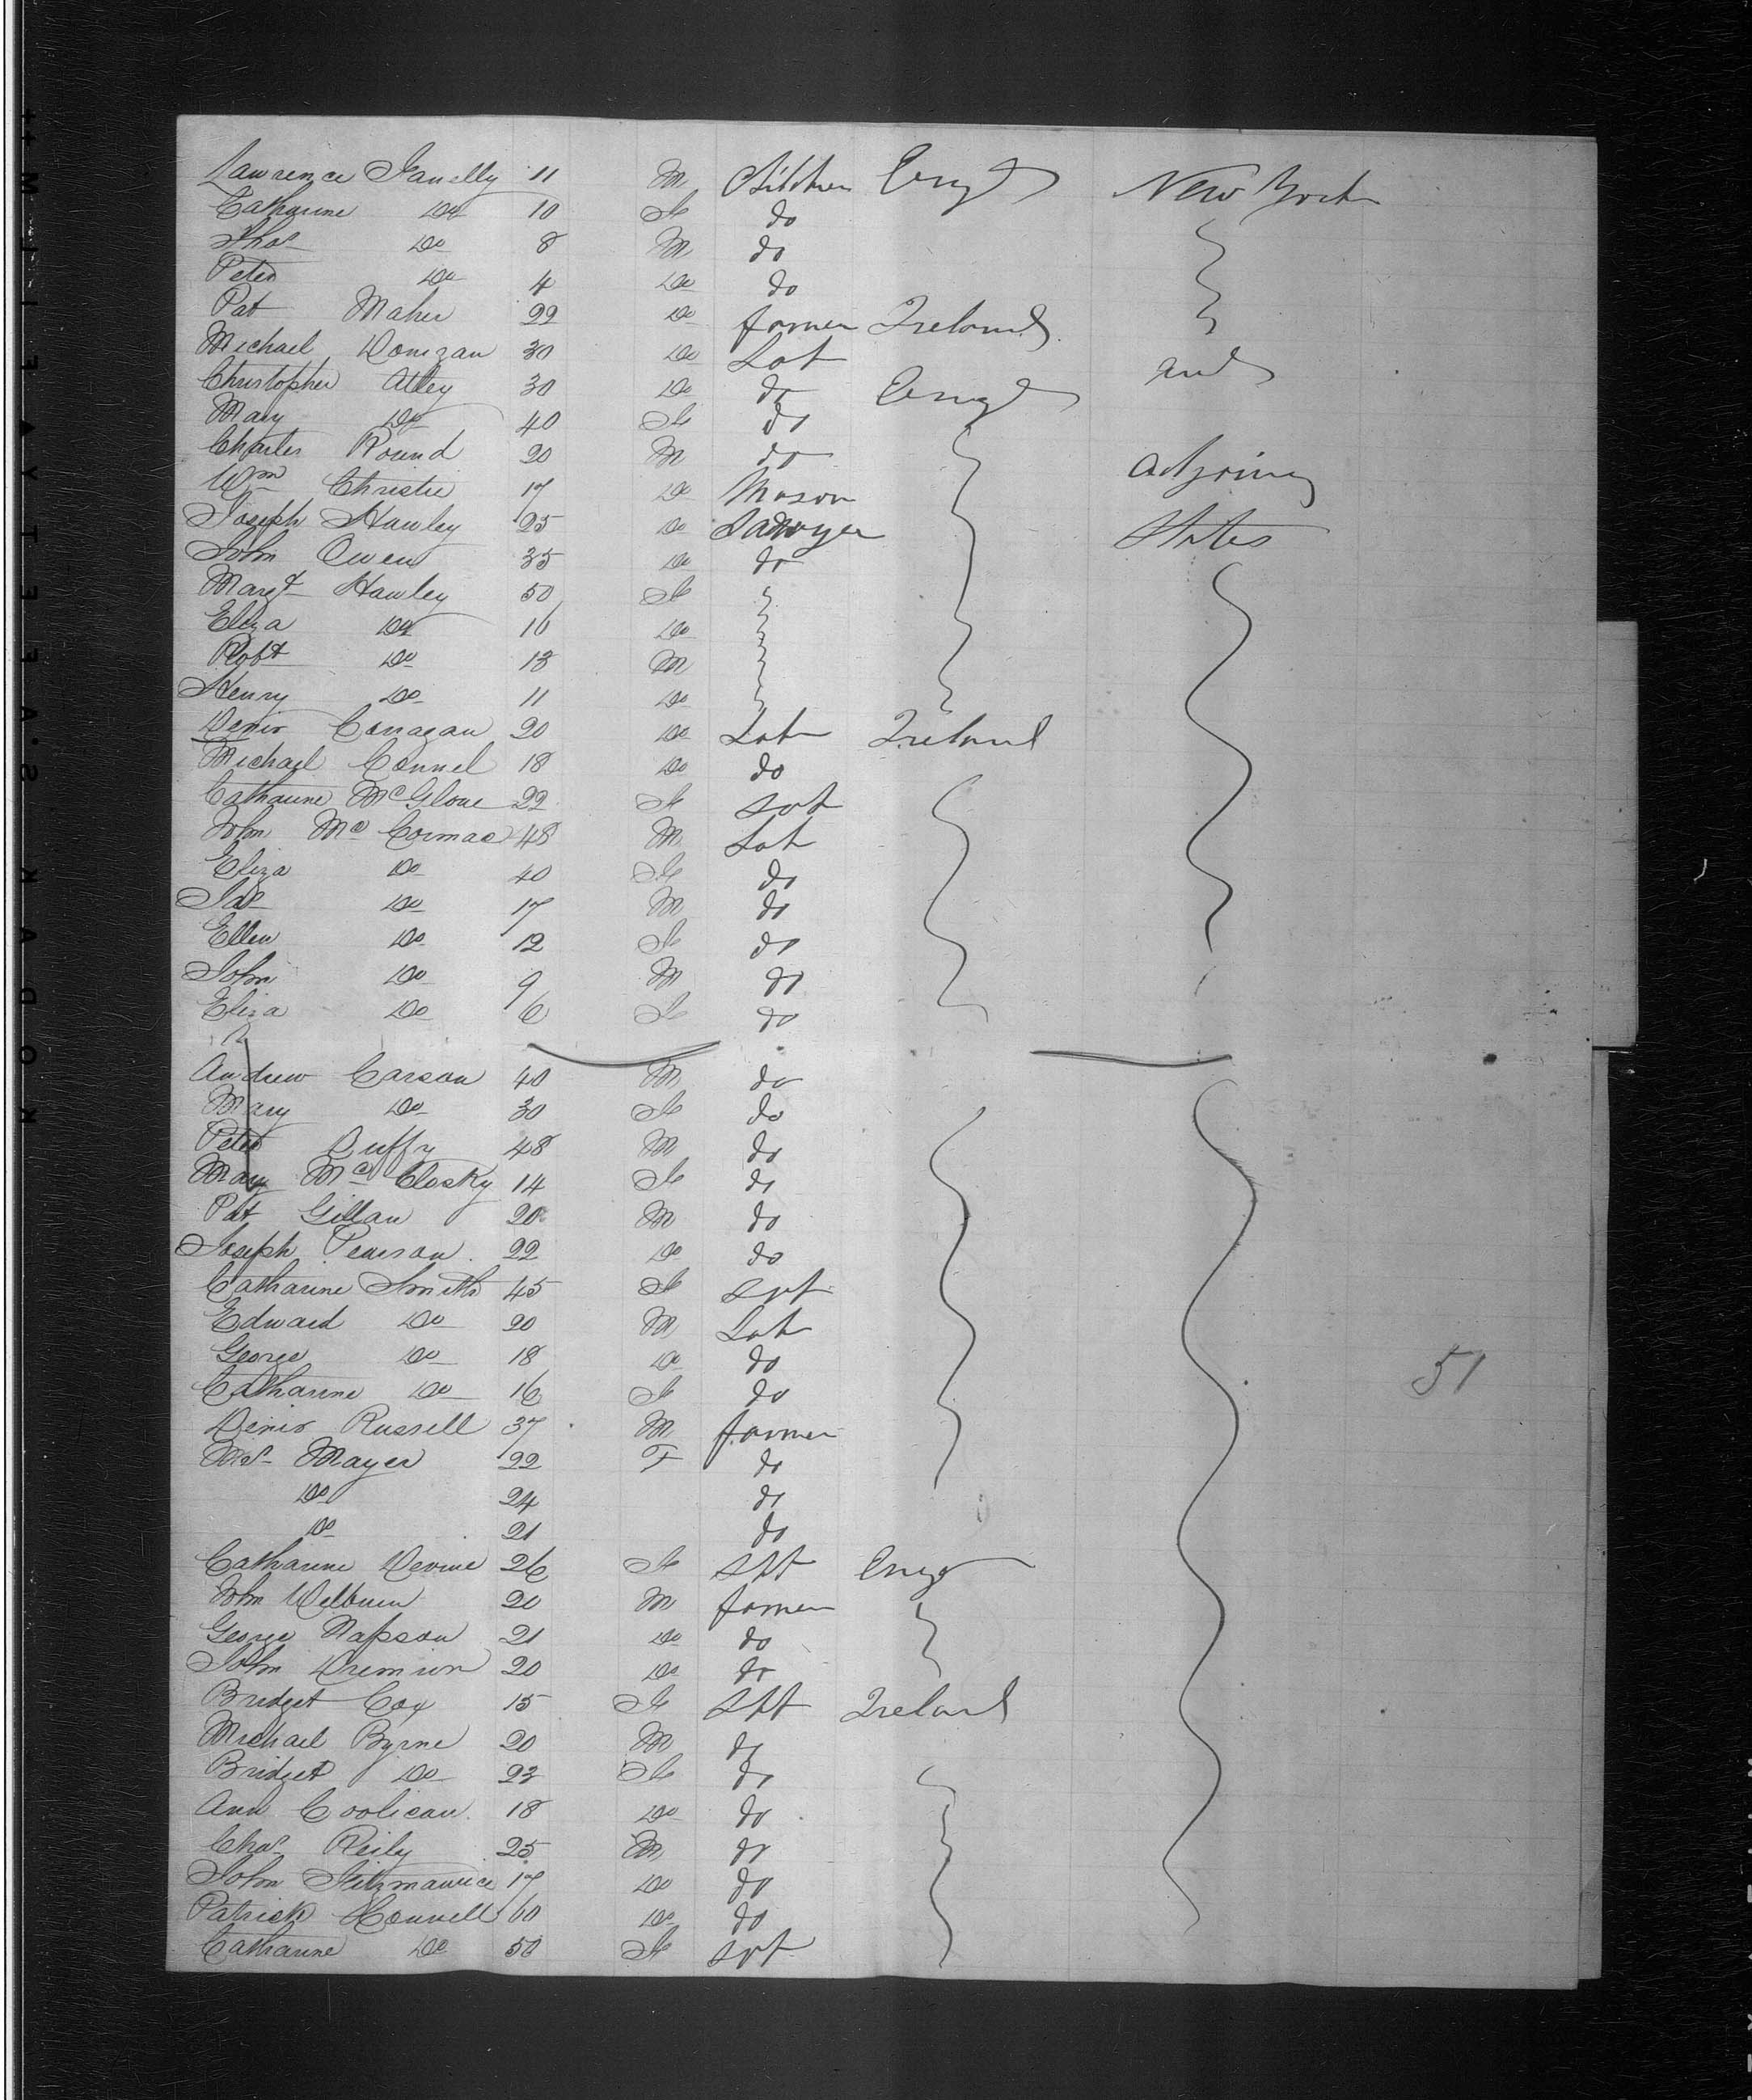 Lawrence Fanelly 11 M Children Engd New York
Catharine Do 10 F do
Thos Do 8 M do
Peter Do 4 Do do
Pat Maher 22 Do farmer Ireland
Michael Donigan 30 Do Lab and
Christopher Alley 30 Do do Engd
Mary Do 40 F do
Charles Round 20 M do adjoining
Wm Christie 17 Do Mason
Joseph Hawley 25 Do Sawyer States
John Owen 35 Do do
Margt Hawley 50 F
Eliza Do 16 Do
Robt Do 13 M
Henry Do 11 Do
Denis Corragan 20 Do Lab Ireland
Michael Connel 18 Do do
Catharine McGlone 22 F spt
John McCormac 48 M Lab
Eliza Do 40 F do
Jas Do 17 M do
Ellen Do 12 F do
John Do 9 M do
Eliza Do 6 F do
Andrew Carson 40 M do
Mary Do 30 F do
Peter Duffy 48 M do
Mary McClosky 14 F do
Pat Gillan 20 M do
Joseph Pearson 22 Do do
Catharine Smith 45 F spt
Edward Do 20 M Lab
George Do 18 Do do 51
Catharine Do 16 F do
Denis Russell 37 M farmer
Mrs Mayer 22 F do
Do 24 do
Do 21 do
Catharine Devine 26 F spt Engd
John Welburn 20 M farmer
George Napson 21 Do do
John 20 Do do
Bridget Coy 15 F spt Ireland
Michael Byrne 20 M do
Bridget Do 23 F do
Ann Coolican 18 Do do
Chas Reily 25 M do
John Fitzmaurice 17 Do do
Patrick Connell 60 Do do
Catharine Do 50 F spt